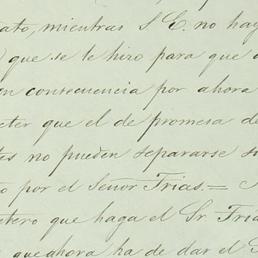 ato, mientras S E. no hag
que se le hizo para que
en consecuencia por ahora
eter que el de promesa de
es no pueden separarse su
o por el Señor Frias. =
tero que haga el Sr. Fria
que ahora ha de dar el